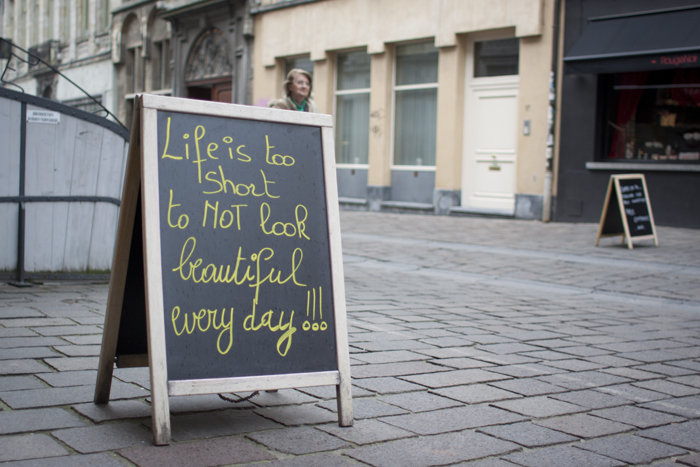 Life is too
short
to NOT look
beautiful
every day!!!